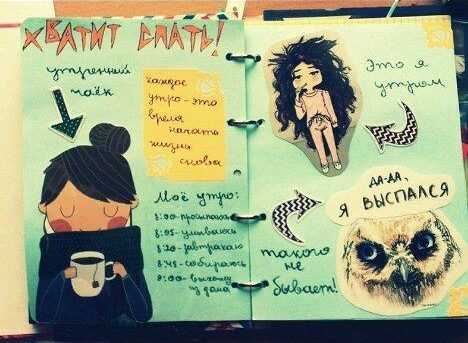 ХВАТИТ СПАТЬ!
утренний
чаёк
каждое
утро - это
время
начать
жизнь
снова
Моё утро:
8:00 - просыпаюсь
8:05 - умываюсь
8:20 - завтракаю
8:45 - собираюсь
9:00 - выхожу
из дома
Это я
утром
ДА-ДА,
Я ВЫСПАЛСЯ
такого
не
бывает!